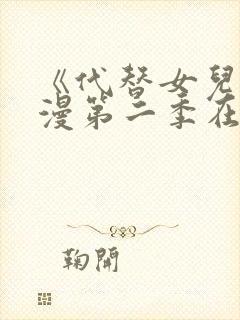 《代替女兒
漫第二季在
鞠開